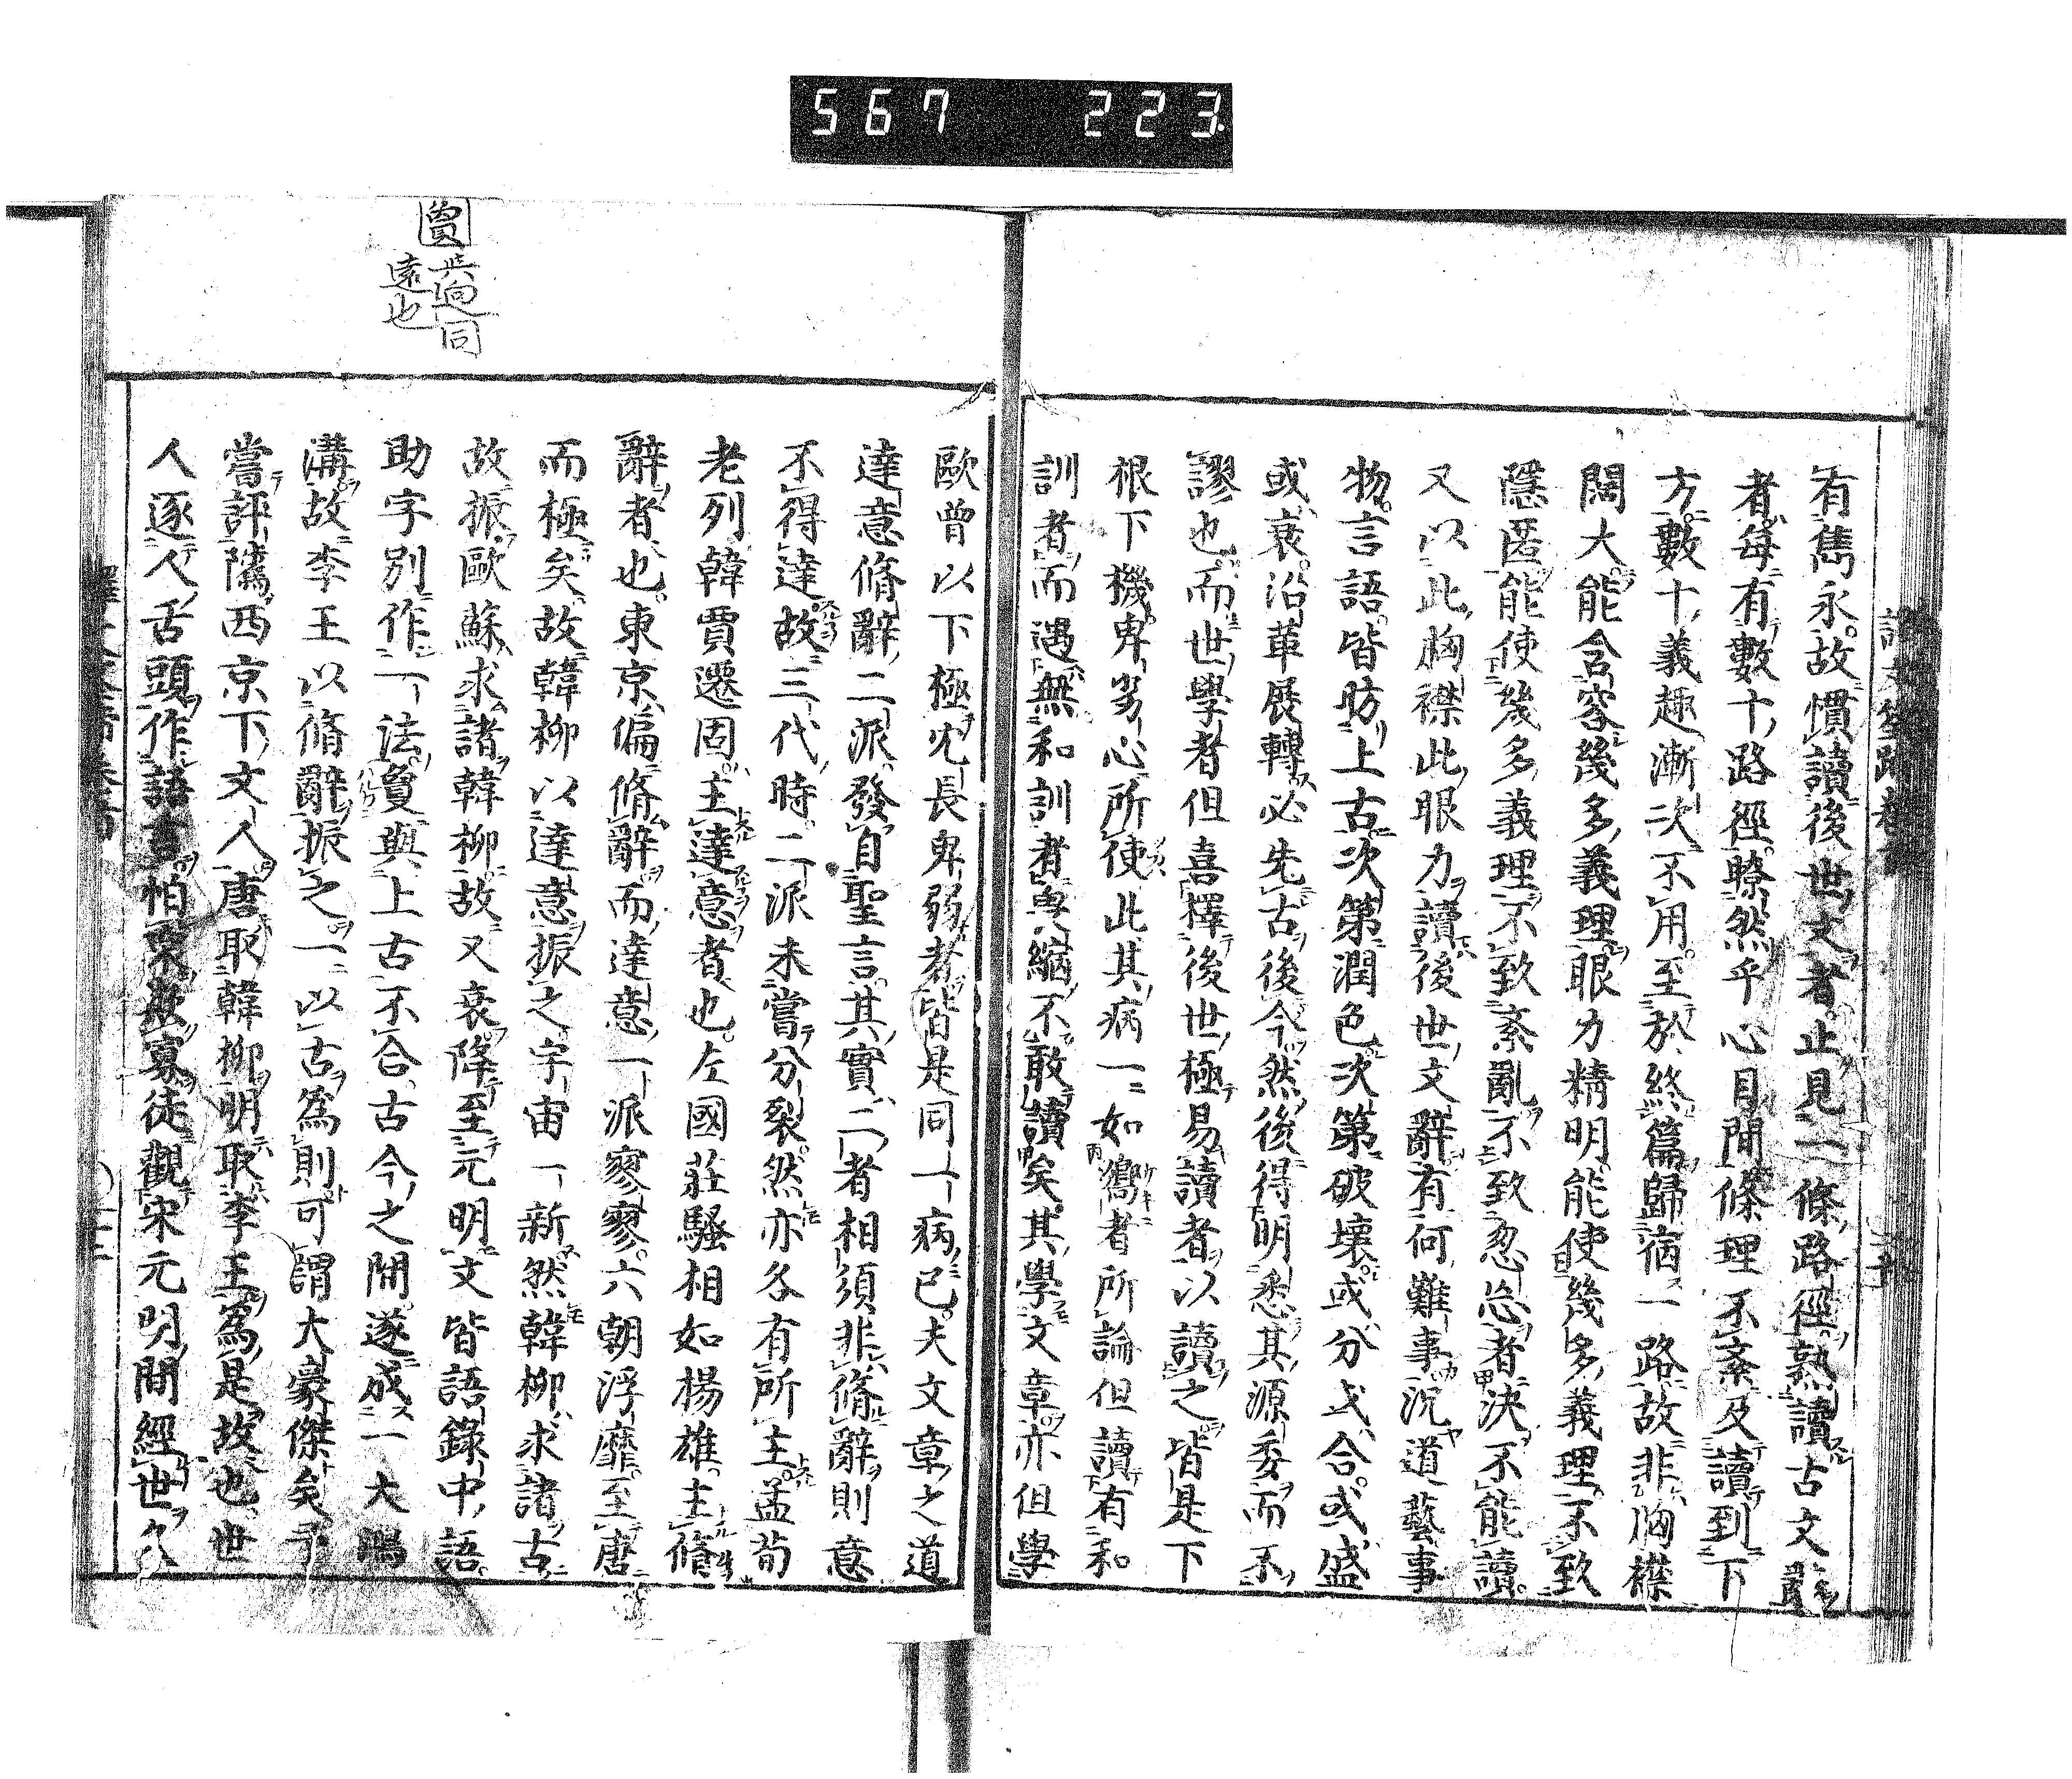 567 223
有雋永故慣讀後世文者止見一條路徑熟讀古文辭
者每有數十路徑瞭然乎心目間條理不紊及讀到下
方數十義趣漸次不用至於終篇歸宿一路故非胸襟
闊大能含容幾多義理眼力精明能使幾多義理不致
隱匿能使幾多義理不致紊亂不致忽忘者決不能讀
又以此胸襟此眼力讀後世文辭有何難事況道藝事
物言語皆昉上古次第潤色次第破壞或分或合或盛
或衰沿革展轉必先古後今然後得明悉其源委而不
謬也而世學者但喜擇後世極易讀者以讀之皆是下
根下機卑劣心所使此其病一如嚮者所論但讀有和
訓者而遇無和訓者畏縮不敢讀矣其學文章亦但學
歐曾以下極冗長卑弱者皆是同一病已夫文章之道
達意脩辭二派發自聖言其實二者相須非脩辭則意
不得達故三代時二派未嘗分裂然亦各有所主孟荀
老列韓賈遷固主達意者也左國莊騷相如楊雄主脩
辭者也東京偏脩辭而達意一派寥寥六朝浮靡至唐
而極矣故韓柳以達意振之宇宙一新然韓柳求諸古
故振歐蘇求諸韓柳故又衰降至元明文皆語錄中語
助字別作一法敻與上古不合古今之間遂成一大鴻
溝故李王以脩辭振之一以古為則可謂大豪傑矣予
嘗評隲西京下文人唐取韓柳明取李王為是故也世
人逐人舌頭作語言怕眾欺寡徒觀宋元明間經世久
敻
與迥同
遠也